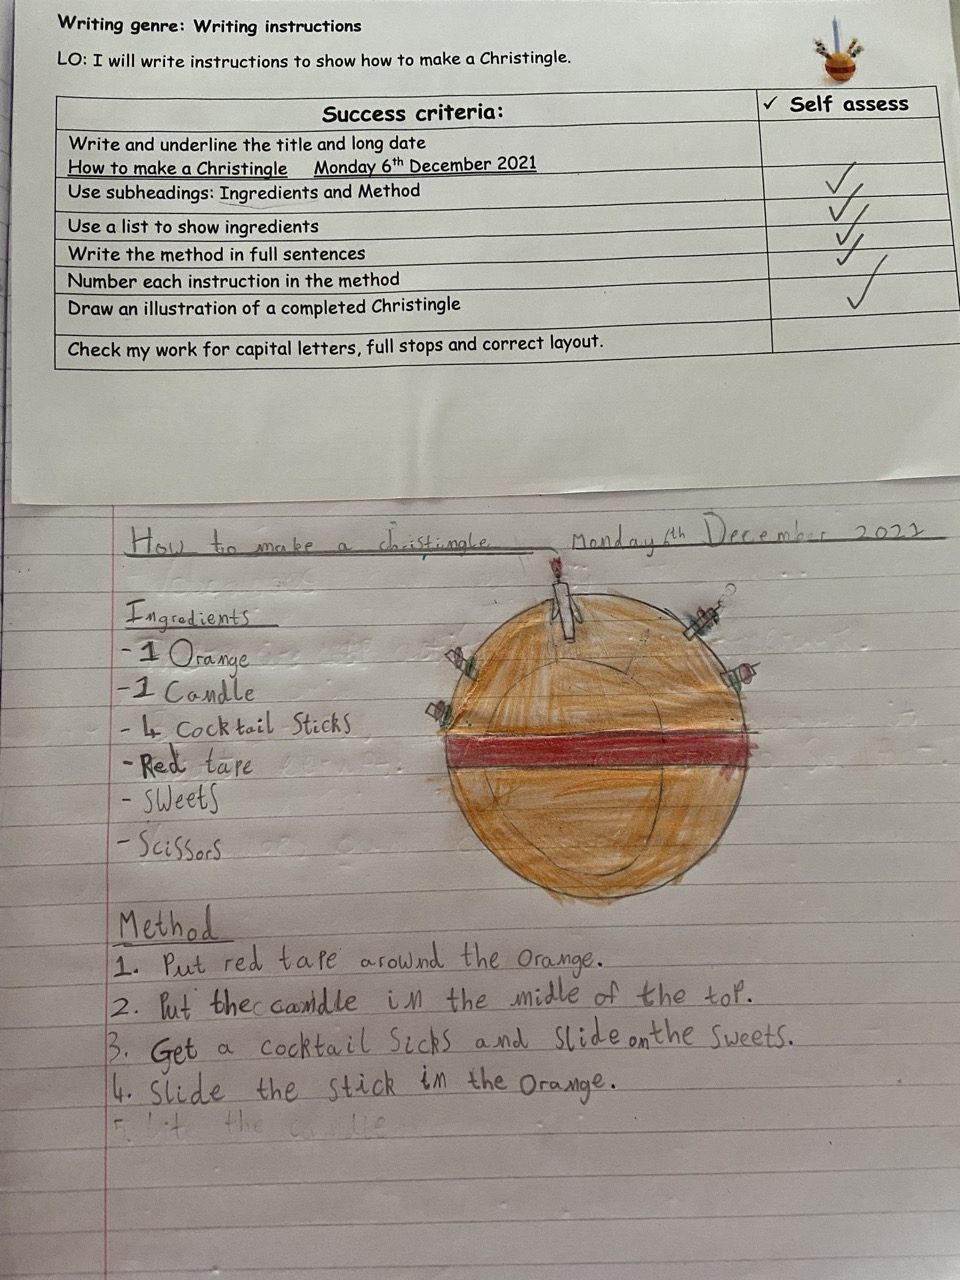 Writing genre: Writing instructions
LO: I will write instructions to show how to make a Christingle.
Success criteria: ✓ Self assess
Write and underline the title and long date
How to make a Christingle Monday 6th December 2021
Use subheadings: Ingredients and Method
Use a list to show ingredients
Write the method in full sentences
Number each instruction in the method
Draw an illustration of a completed Christingle
Check my work for capital letters, full stops and correct layout.
How to make a christingle Monday 6th December 2021
Ingredients
- 1 Orange
- 1 Candle
- 4 Cocktail Sticks
- Red tape
- Sweets
- Scissors
Method
1. Put red tape arownd the Orange.
2. Put the candle in the midle of the top.
3. Get a cocktail Sicks and slide on the Sweets.
4. Slide the stick in the Orange.
5. the candle